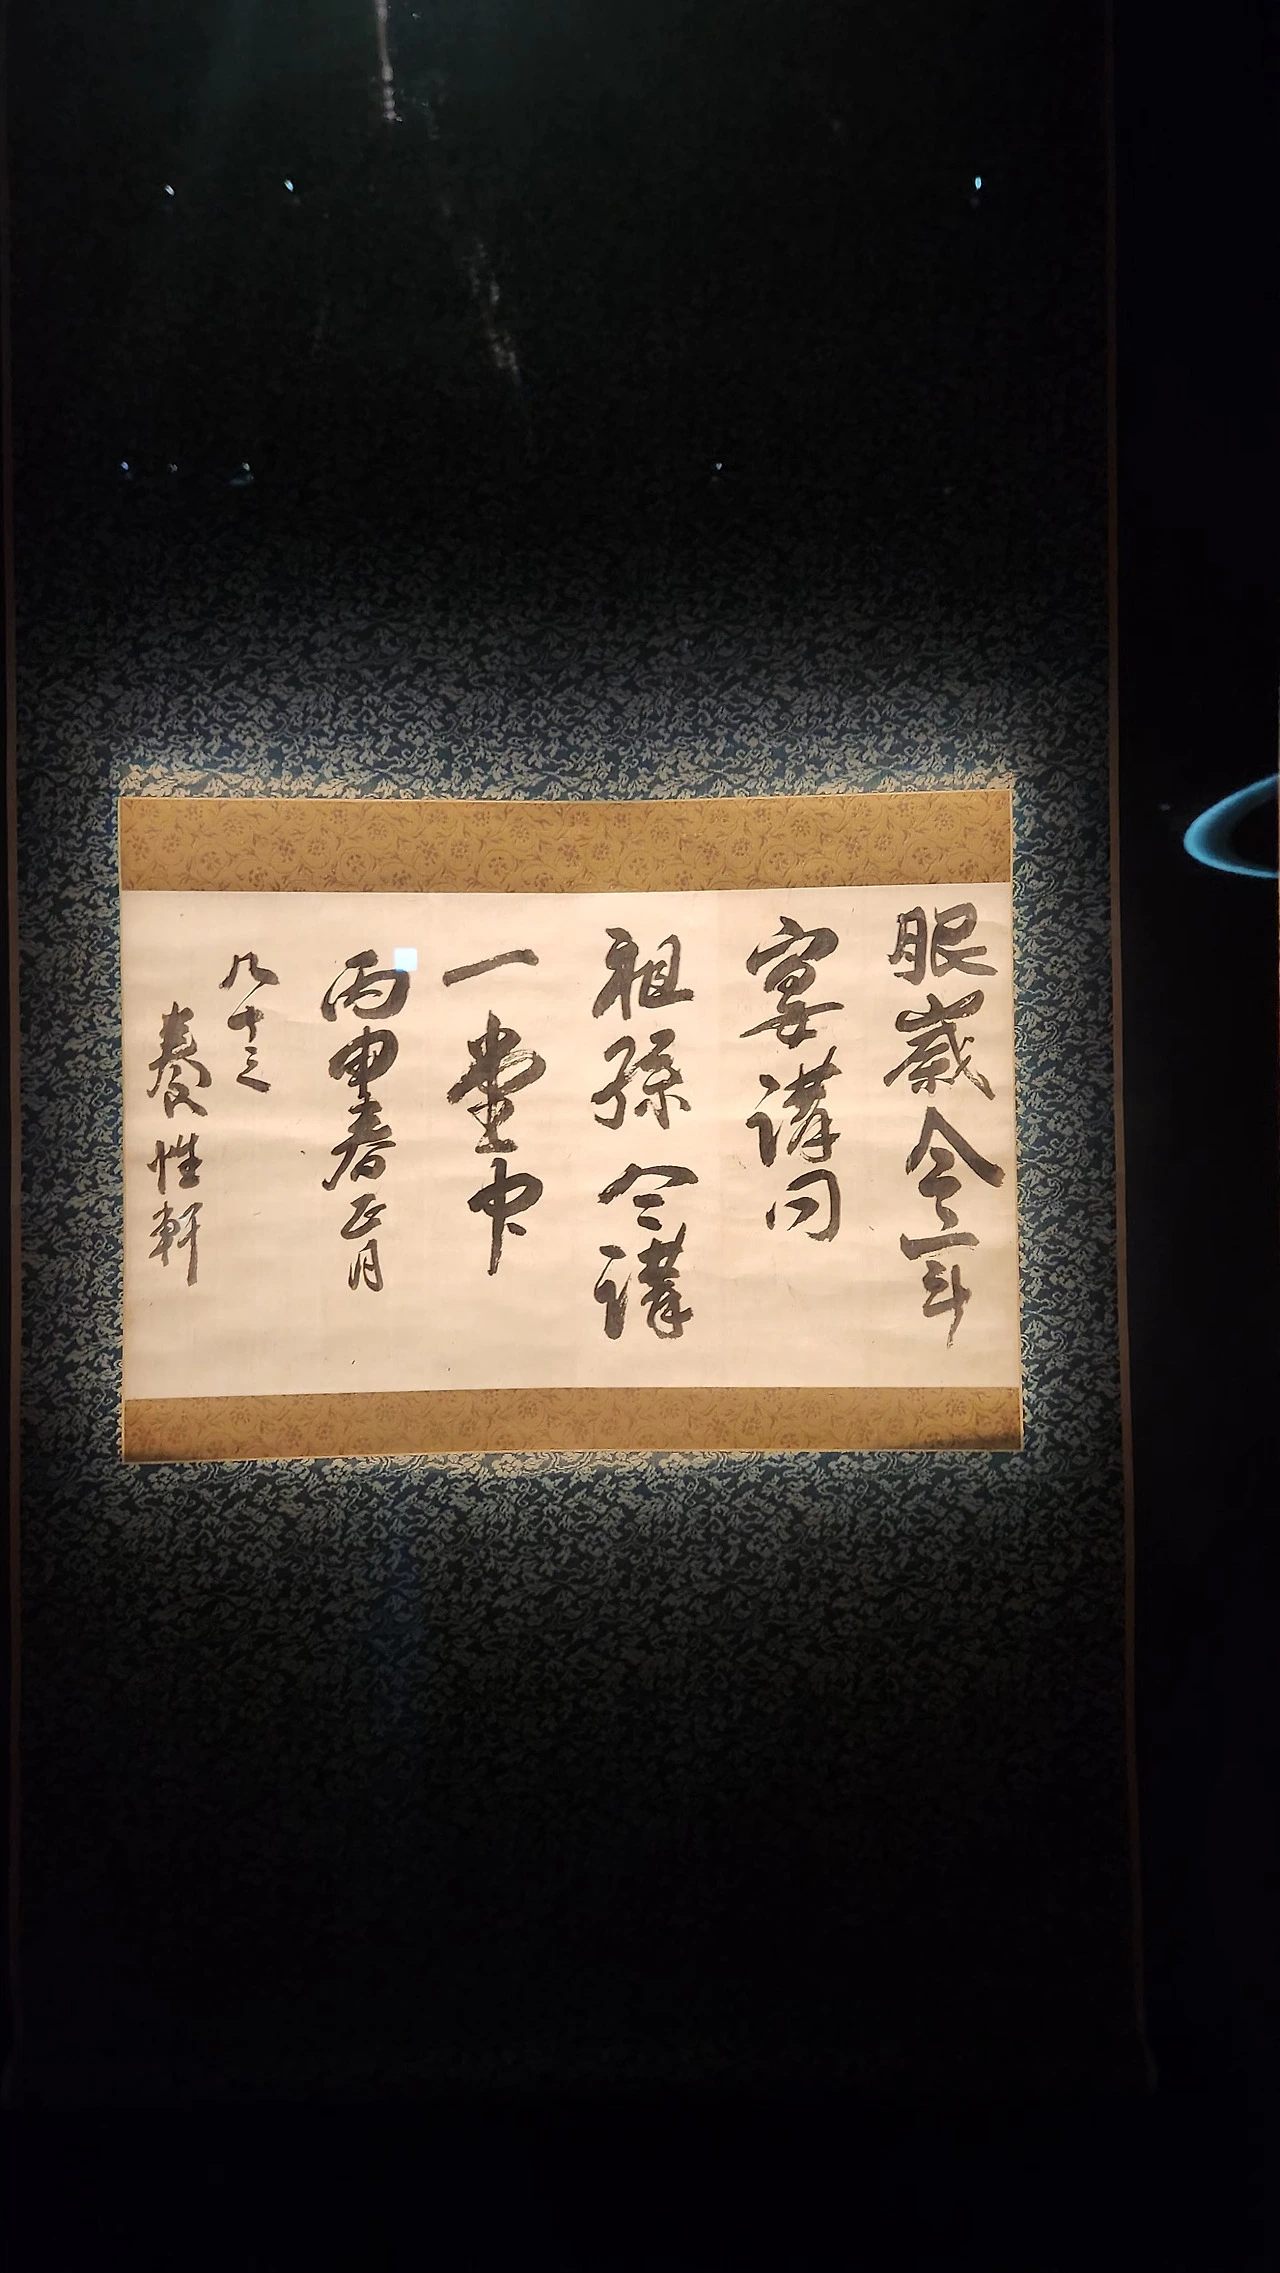 眼歳今
宴講
祖孫今講
一堂中
丙申春正月
九十三
養性軒